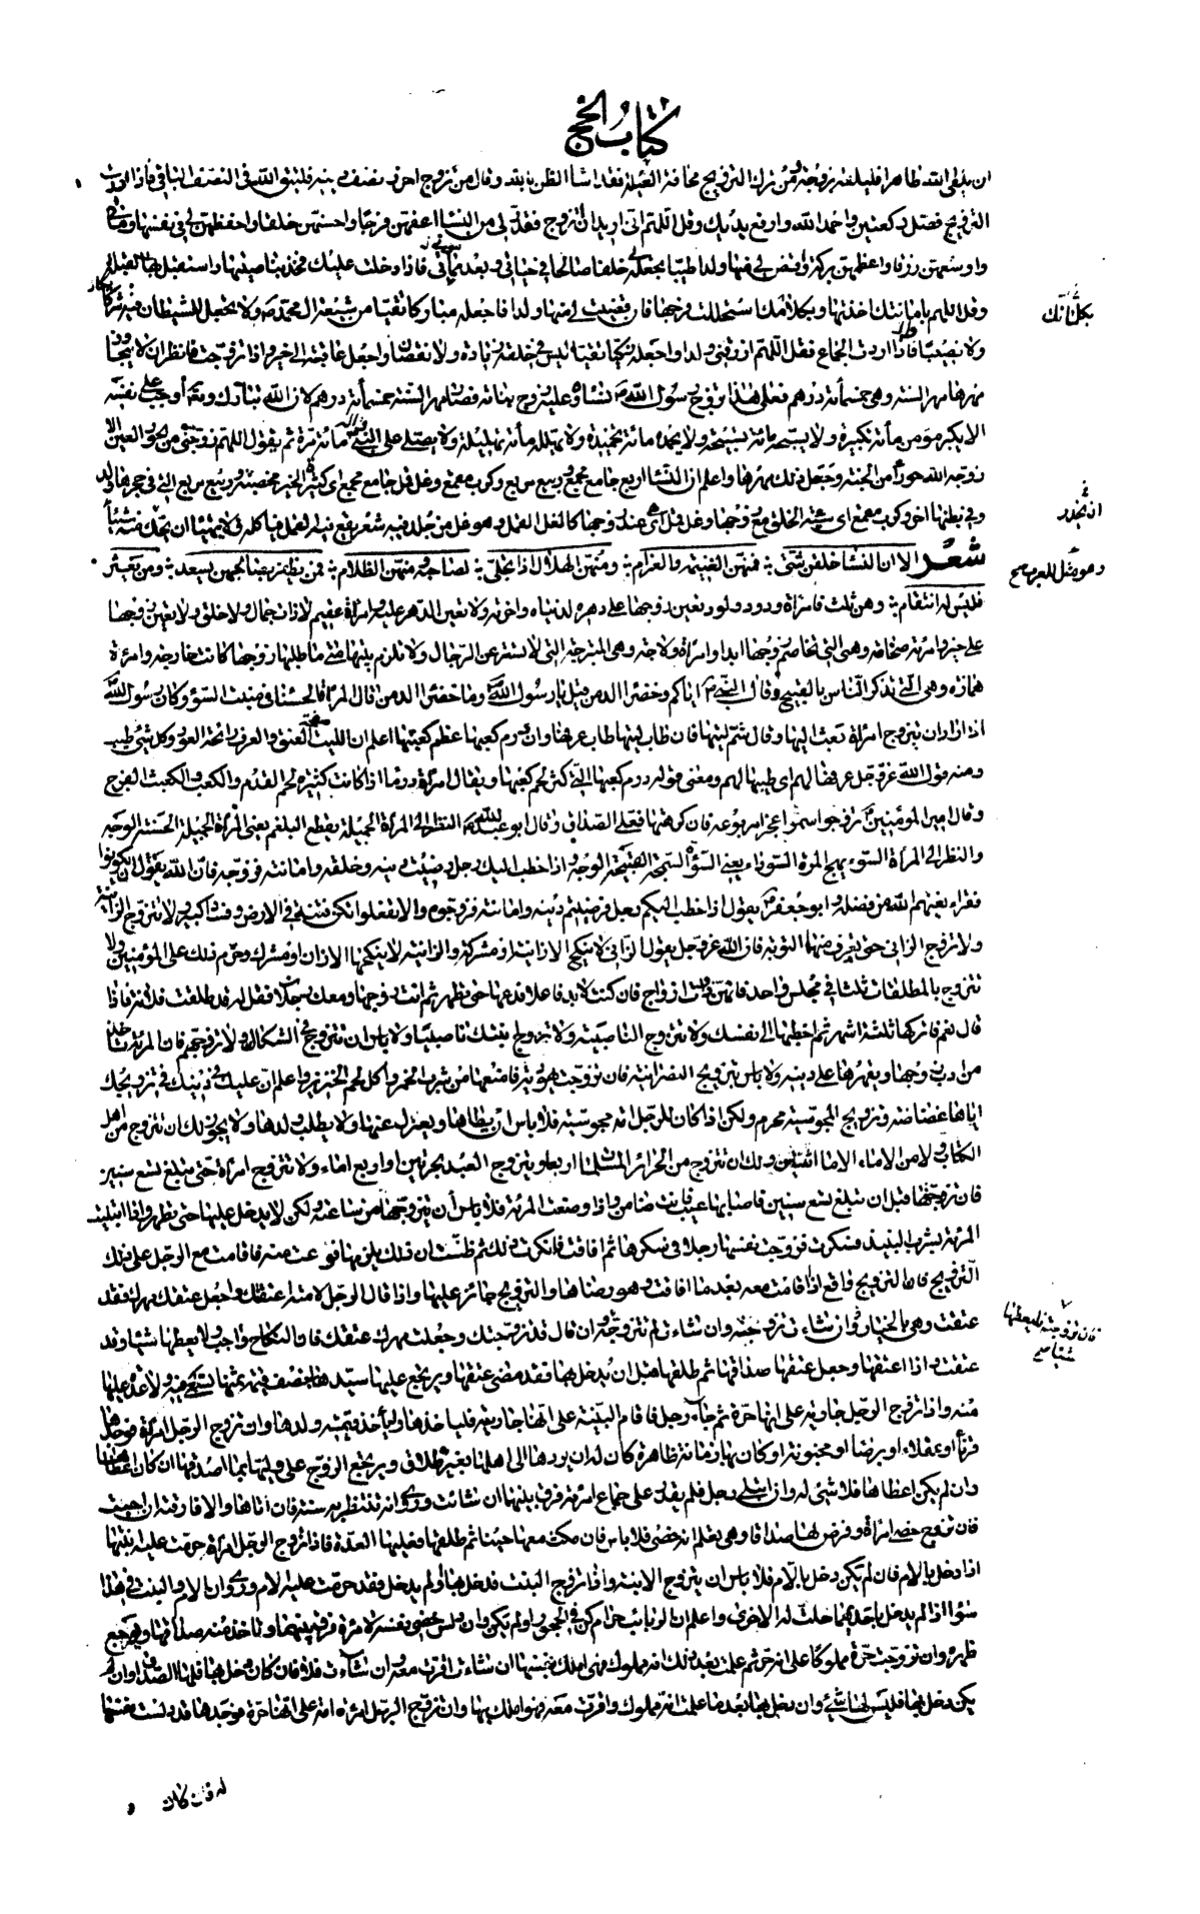 كتاب الحج
ان يلقى الله طاهرا فليلقه بزوجة ومن ترك التزويج مخافة العيلة فقد اساء الظن بالله وقال من تزوج احرز نصف دينه فليتق الله في النصف الباقي فاذا اردت
التزويج فصل ركعتين واحمد الله وارفع يديك وقل اللهم اني اريد ان اتزوج فقدر لي من النساء اعفهن فرجا واحسنهن خلقا واحفظهن لي في نفسها ومالي
واوسعهن رزقا واعظمهن بركة واقض لي منها ولدا طيبا تجعله لي خلفا صالحا في حياتي وبعد موتي فاذا دخلت عليك فخذ بناصيتها واستقبل بها القبلة
وقل اللهم بامانتك اخذتها وبكلامك استحللت فرجها فان قضيت لي منها ولدا فاجعله مباركا تقيا من شيعة ال محمد ص ولا تجعل للشيطان فيه شركا
ولا نصيبا فاذا اردت الجماع فقل اللهم ارزقني ولدا واجعله زكيا تقيا ليس في خلقه زيادة ولا نقصان واجعل عاقبته الى خير واذا تزوجت فانظر ان لا يتجاوز
مهرها مهر السنة وهي خمسمائة درهم فعلى هذا تزوج رسول الله نساءه وعليه زوج بناته فصار مهر السنة خمسمائة درهم لان الله تبارك وتعالى أوجب على نفسه
الا يكبره مؤمن مائة تكبيرة ولا يسبحه مائة تسبيحة ولا يحمده مائة تحميدة ولا يهلله مائة تهليلة ولا يصلي على النبي مائة مرة ثم يقول اللهم زوجني من الحور العين الا
زوجه الله حوراء من الجنة وجعل ذلك مهرها واعلم ان النساء اربع جامع مجمع وربيع مربع وكرب مقمع وغل قمل جامع مجمع اى كثيرة الخير مخصبة وربيع مربع التي في حجرها ولد
وفي بطنها اخر وكرب مقمع اى سيئة الخلق مع زوجها وغل قمل هي عند زوجها كالغل القمل وهو غل من جلد فيه شعر يقع فيه القمل فياكله فلا يتهيأ ان يحل منه شيئا
شعر الا ان النساء خلقن شتى فمنهن الغنيمة والغرام ومنهن الهلال اذا تجلى لصاحبه ومنهن الظلام فمن يظفر بصالحهن يسعد ومن يعثر
فليس له انتقام وهن ثلث فامرأة ودود ولود تعين زوجها على دهره لدنياه واخرته ولا تعين الدهر عليه وامرأة عقيم لا ذات جمال ولا خلق ولا تعين زوجها
على خير وامرأة صخابة وهي التي تخاصم زوجها ابدا وامرأة ولاجة وهي المتبرجة التي لا تستتر عن الرجال ولا تلزم بيتها متى ما طلبها زوجها كانت خارجة وامرأة
همازة وهي التي تذكر الناس بالقبيح وقال النبي اياكم وخضراء الدمن قيل يا رسول الله وما خضراء الدمن قال المرأة الحسناء في منبت السوء وكان رسول الله
اذا اراد ان يتزوج امرأة بعث اليها وقال شم ليتها فان طاب ليتها طاب عرفها وان درم كعبها عظم كعثبها اعلم ان الليت صفحة العنق والعرف رائحة العود وكل شيء طيب
ومنه قول الله عز وجل عرفها لهم اى طيبها لهم ومعنى قوله درم كعبها اى كثر لحم كعبها ويقال امرأة درماء اذا كانت كثيرة لحم القدم والكعب والكعثب الفرج
وقال امير المؤمنين تزوجوا سمراء عجزاء مربوعة فان كرهتها فعلى الصداق وقال ابو عبد الله النظر الى المرأة الجميلة يقطع البلغم يعني المرأة الجميلة الحسنة الوجه
والنظر الى المرأة السوء يهيج المرة السوداء يعني السوءة السمجة القبيحة الوجه واذا خطب اليك رجل رضيت دينه وخلقه وامانته فزوجه فان الله يقول ان يكونوا
فقراء يغنهم الله من فضله وابو جعفر يقول اذا خطب اليكم رجل فرضيتم دينه وامانته فزوجوه والا تفعلوا تكن فتنة في الارض وفساد كبير ولا تتزوج الزانية
ولا تزوج الزاني حتى تعرف منهما التوبة فان الله عز وجل يقول الزاني لا ينكح الا زانية او مشركة والزانية لا ينكحها الا زان او مشرك وحرم ذلك على المؤمنين ولا
تتزوج بالمطلقات ثلثا في مجلس واحد فانهن ذوات ازواج فان كنت لا بد فاعلا فدعها حتى تطهر ثم ائت زوجها ومعك رجلان فقل له قد طلقت فلانة فاذا
قال نعم فاتركها ثلثة اشهر ثم اخطبها الى نفسك ولا تتزوج الناصبية ولا تزوج ابنتك ناصبيا ولا باس ان تتزوج في الشكاك ولا تزوجهم فان المرأة تاخذ
من ادب زوجها ويقهرها على دينه ولا باس بتزويج النصرانية فان تزوجت يهودية فامنعها من شرب الخمر واكل لحم الخنزير واعلم ان عليك في دينك في تزويجك
اياها غضاضة وتزويج المجوسية محرم ولكن اذا كان للرجل امة مجوسية فلا باس ان يطاها ويعزل عنها ولا يطلب ولدها ولا يجوز لك ان تتزوج من اهل
الكتاب ولا من الاماء الا اثنتين ولك ان تتزوج من الحرائر المسلمات اربعا ويتزوج العبد بحرتين او اربع اماء ولا تتزوج امرأة حتى تبلغ تسع سنين
فان تزوجتها قبل ان تبلغ تسع سنين فاصابها عيب فانت ضامن واذا وضعت المرأة فلا باس أن يتزوجها من ساعته ولكن لا يدخل عليها حتى تطهر واذا ابتليت
المرأة بشرب النبيذ فسكرت فزوجت نفسها رجلا في سكرها ثم افاقت فانكرت ذلك ثم ظنت ان ذلك يلزمها فورعت منه فاقامت مع الرجل على ذلك
التزويج فان التزويج واقع اذا قامت معه بعد ما افاقت وهو رضاها والتزويج جائز عليها واذا قال الرجل لامته اعتقتك واجعل عتقك مهرك فقد
عتقت وهي بالخيار ان شاءت تزوجته وان شاءت لم تتزوجه وان قال قد تزوجتك وجعلت مهرك عتقك فان النكاح واجب ولا يعطيها شيئا وقد
عتقت واذا اعتقها وجعل عتقها صداقها ثم طلقها قبل ان يدخل بها فقد مضى عتقها ويرجع عليها سيدها بنصف قيمة ثمنها تستسعى فيه ولا عدة عليها
منه واذا تزوج الرجل جارية على انها حرة ثم جاء رجل فاقام البينة على انها جاريته فلياخذها وليأخذ قيمة ولدها وان تزوج الرجل امرأة فوجدها
قرناء او عفلاء او برصاء او مجنونة او كان بها زمانة ظاهرة كان له ان يردها الى اهلها بغير طلاق ويرجع الزوج على وليها بما اصدقها ان كان اعطاها
وان لم يكن اعطاها فلا شيء له وان ابتلى رجل فلم يقدر على جماع امرأته فرق بينهما ان شاءت وروى انه تنتظر به سنة فان اتاها والا فارقته ان احبت
فان تزوج خصى امرأة وفرض لها صداقا وهي تعلم انه خصى فلا باس فان مكث معها حينا ثم طلقها فعليها العدة فاذا تزوج الرجل المرأة حرمت عليه ابنتها
اذا دخل بالام فان لم تكن دخل بالام فلا باس ان يتزوج الابنة واذا تزوج البنت فدخل بها او لم يدخل فقد حرمت عليه الام وروى ان الام والبنت في هذا
سواء اذا لم يدخل باحديهما حلت له الاخرى واعلم ان الربائب حرام كن في الحجر او لم يكن وان دلس خصى نفسه لامرأة فرق بينهما وتاخذ منه صداقها ويوجع
ظهره وان تزوجت حرة مملوكا على انه حر ثم علمت بعد ذلك انه مملوك فهي املك بنفسها ان شاءت اقرت معه وان شاءت فلا فان كان دخل بها فلها الصداق وان لم
يكن دخل بها فليس لها شيء وان دخل بها بعد ما علمت انه مملوك واقرت معه فهو املك بها وان تزوج الرجل امرأة امة على انها حرة فوجدها قد دلست نفسها
بكلماتك
ان يحذر
وهو مثل للعرب صح
فان تزوجته فليعطها
شيئا صح
له فان كان